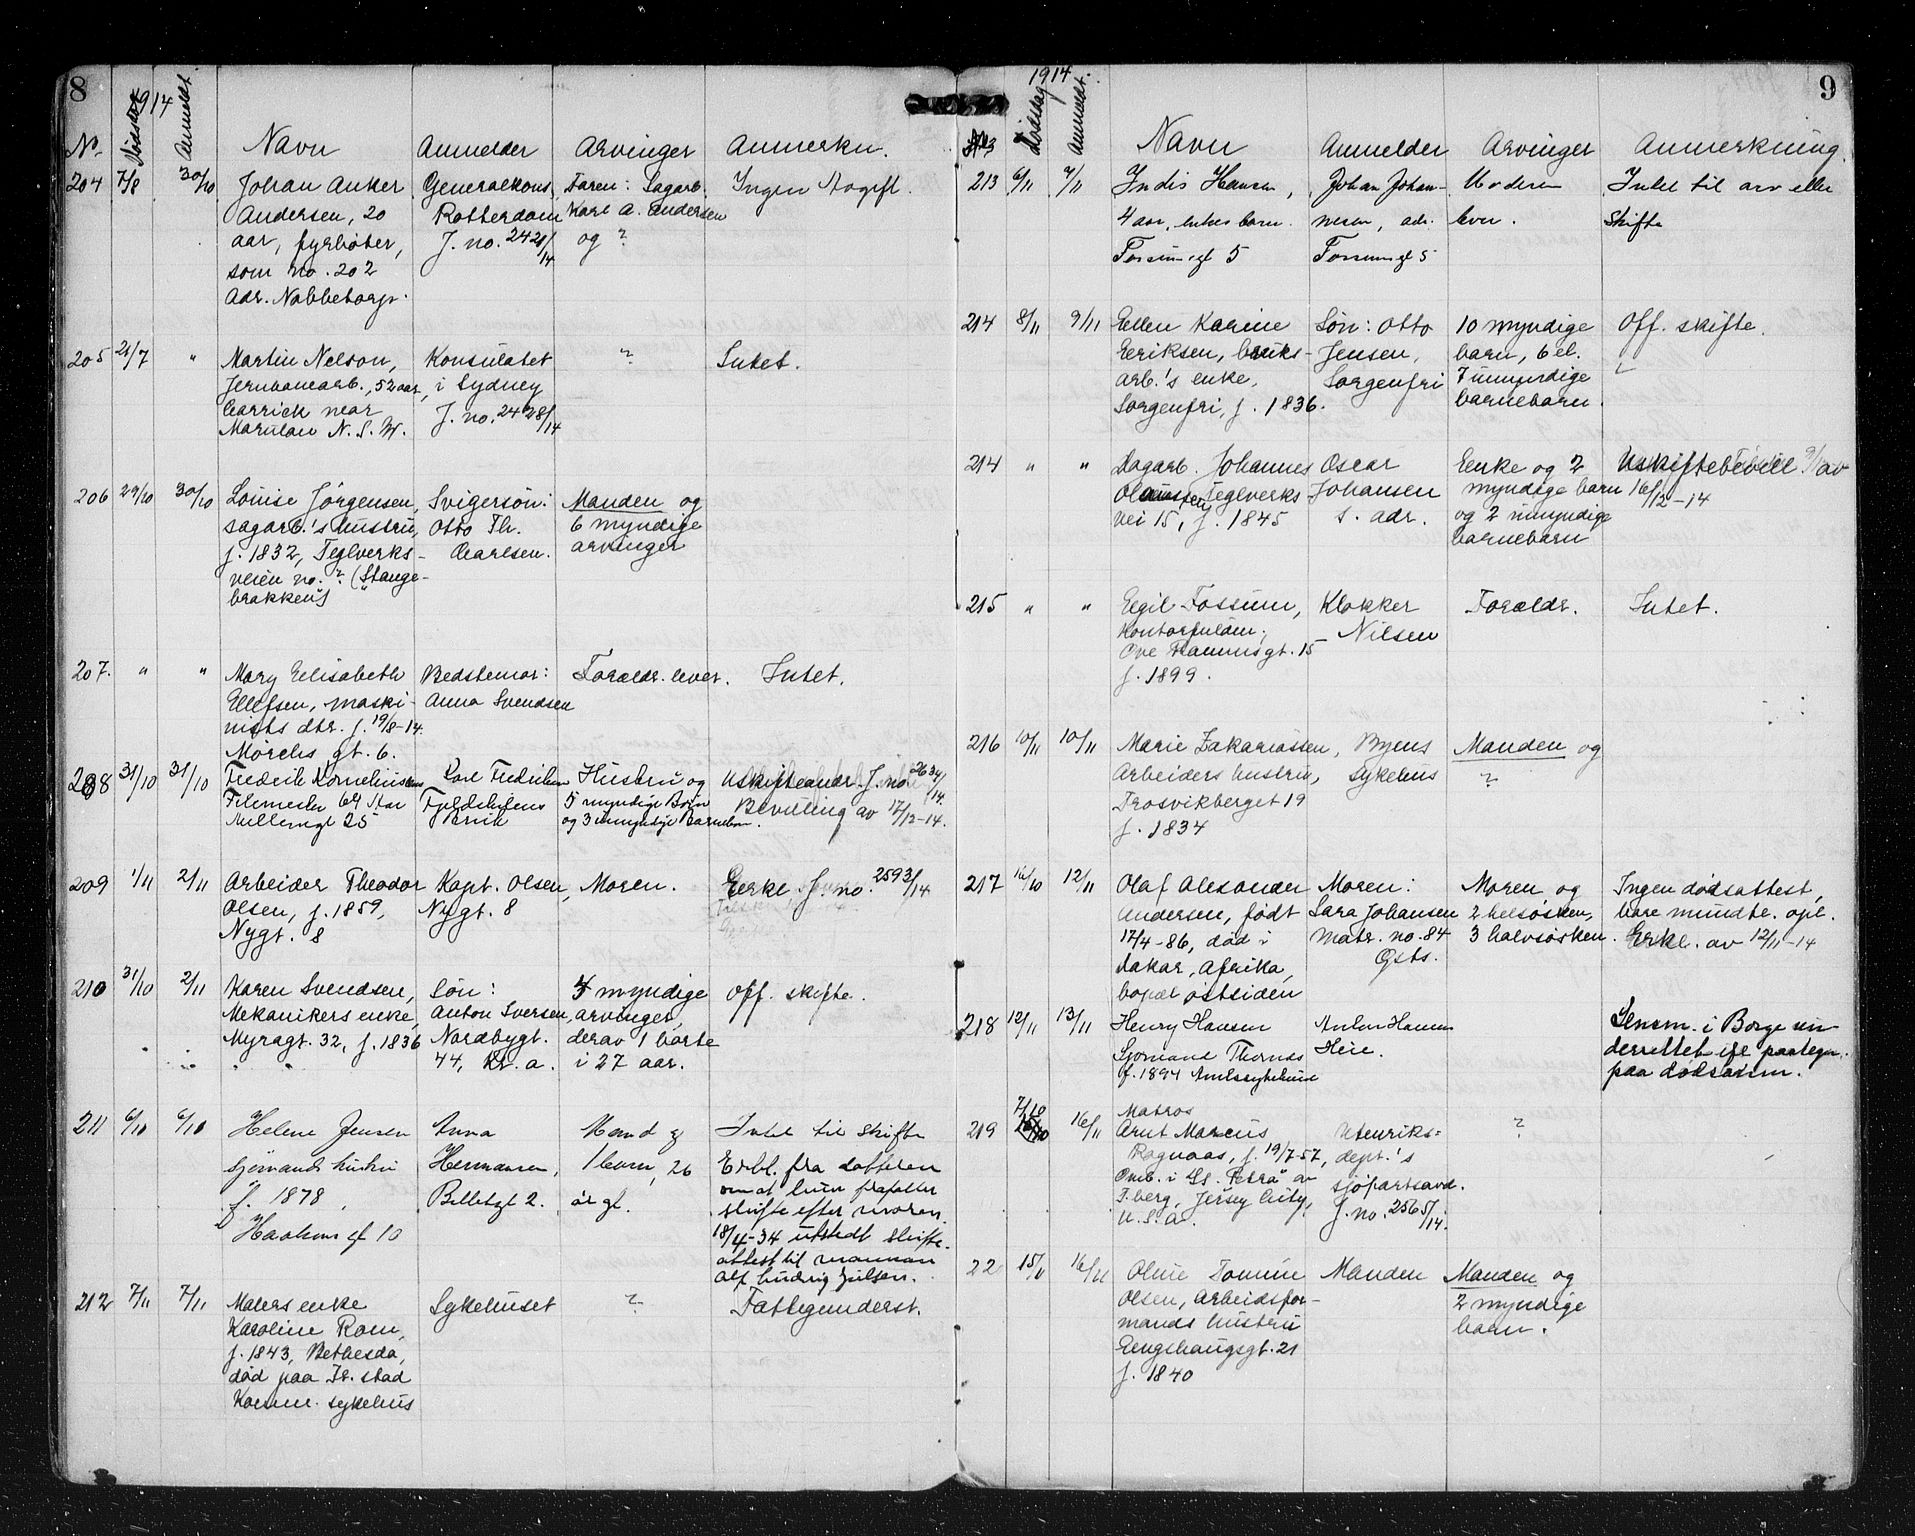 8
1914
Anmeldt
No. Navn Anmelder Arvinger Anmerkn.
204 7/8 30/10 Johan Anker Generalkons. Faren: Sagarb. Ingen Avgift.
Andersen, 20 Rotterdam Karl A. Andersen
aar, fyrbøter, J. no. 2421/14 og ?
som no. 202
Adr. Nabbetorp.
205 21/7 " Martin Nelson, Konsulatet ? Intet.
Jernbanearb., 52 aar, i Sydney
Carrick near J. no. 2428/14
Marulan N. S. W.
206 29/10 30/10 Louise Jørgensen, Svigersøn: Manden og
sagarb.'s hustru, Otto Th. 6 myndige
f. 1832, Teglverks- Carlsen. arvinger
veien no. ? (Stange-
brakken")
207. " " Mary Elisabeth Bedstemor: Forældr. lever. Intet.
Ellefsen, maski- Anna Svendsen
nists dtr. f. 19/8-14.
Mørchs gt. 6.
208 31/10 31/10 Fredrik Korneliussen Karl Fredriksen Hustru og Uskifteandr. J. no. 2634/14.
Filemester 64 Aar Fjeldskilens 5 myndige Børn Bevilling av 17/12-14.
gt 25 Bruk og 3 umyndige Barnebarn.
209 1/11 2/11 Arbeider Theodor Kapt. Olsen, Moren. Erkl J. no. 2593/14
Olsen, f. 1859, Nygt. 8
Nygt. 8
210 31/10 2/11 Karen Svendsen, Søn: 4 myndige Off. skifte.
Mekanikers enke, Anton Iversen, arvinger,
Myragt. 32, f. 1836 Nordbygt. derav 1 borte
44, Kr. a. i 27 aar.
211 6/10 6/10 Helene Jensen Anna Mand og Intet til skifte
sjømands hustru Hermansen, 1 barn, 26 Erkl. fra datteren
f. 1878, Billetgt 2. år gl. om at hun frafaller
Haakons gt 10 skifte efter moren.
18/4-34 utstedt skifte-
attest til mannen
Alf Ludvig Julsen.
212 7/11 7/11 Malers enke Sykehuset ? Fattigunderst.
Karoline Rom,
f. 1843, Bethesda,
død paa Fr. stad
Komm. sykehus
9
1914
Dødsdag Anmeldt.
Navn Anmelder Arvinger Anmerkning.
213 6/11 7/11 Indis Hansen, Johan Johan- Moderen Intet til arv eller
4 aar, enkes barn. nesen, adr. lever. skifte
Fossumgt 5 Fossumgt 5
214 8/11 9/11 Ellen Karine Søn: Otto 10 myndige Off. skifte.
Eriksen, bruks- Jensen, barn, 6 el.
arb.'s enke, Sorgenfri 7 umyndige
Sorgenfri, f. 1836. barnebarn.
214 " " Dagarb. Johannes Oscar Enke og 2 Uskiftebevill av
Olaussen, Teglverks Johansen myndige barn 16/12-14
vei 15, f. 1845 s. adr. og 2 umyndige
barnebarn
215 " " Egil Fossum, Klokker Forældr. Intet.
Kontorfuldm., Nilsen
Ove Rammsgt. 15
f. 1899.
216 10/11 10/11 Marie Zakariassen, Byens Manden og
Arbeiders hustru, sykehus ?
Trosvikberget 19
f. 1834
217 16/10 12/11 Olaf Alexander Moren: Moren og Ingen dødsattest,
Andersen, født Sara Johansen 2 helsøsken, bare mundtl. opl.
17/4-86, død i Matr. no. 84 3 halvsøsken. Erkl. av 12/11-14
Dakar, Afrika, Østs.
bopæl Østsiden
218 12/11 13/11 Henry Hansen Anton Hansen Lensm. i Borge un
Sjømand Thornes Heie. derrettet ifl. paategn.
f. 1894 Amtssykehuset paa dødsanm.
7/10
219 16/11 Matros
Arnt Marcus Utenriks= ?
Ragnaas, f. 19/7-57, dept.'s
Omb. i SS. "Petra" av sjøfartsavd.
T.berg, Jersey City, J. no. 2565/14.
U. S. A.
22 15/11 16/11 Oline Tomine Manden Manden og
Olsen, Arbeidsfor- 2 myndige
mands hustru barn.
Enghaugsgt. 21
f. 1840